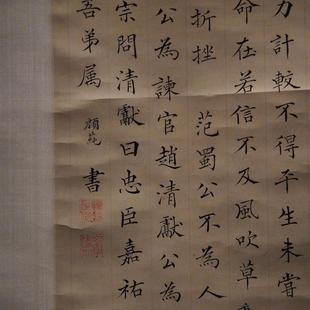 力計較不得平生未嘗
命在若信不及風吹草
折挫 范蜀公不為人
公為諫官趙清獻公為
宗問清獻曰忠臣嘉祐
吾弟属 顔蒓 書